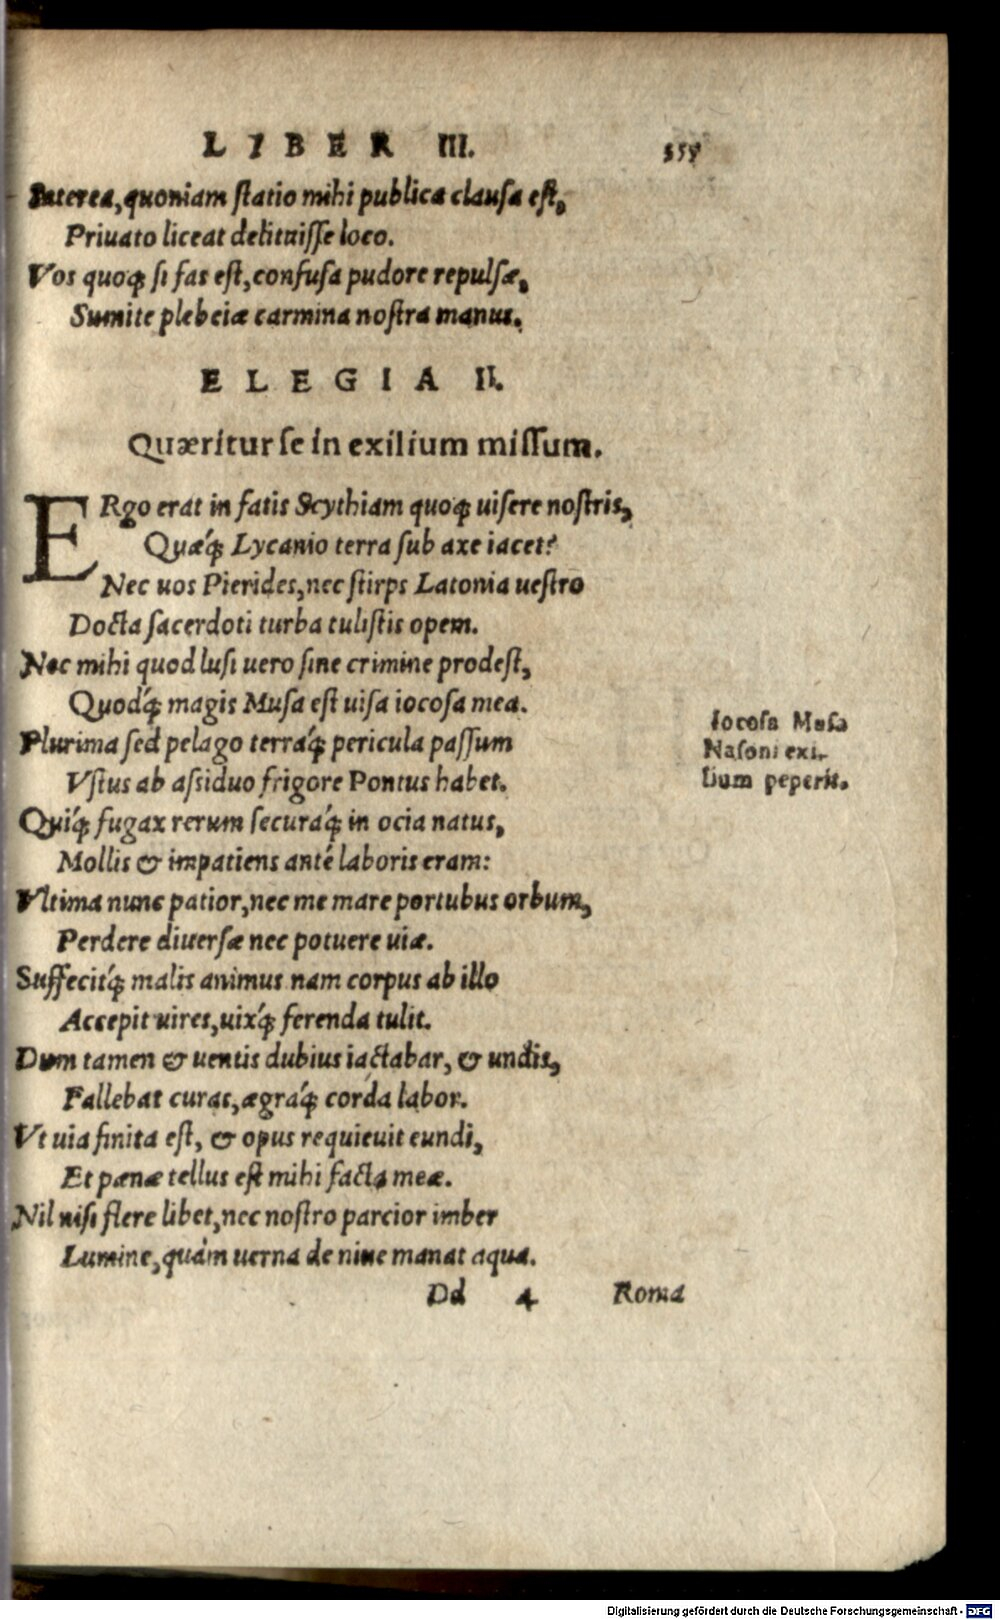 LIBER III.
Interea, quoniam statio mihi publica clausa est,
Priuato liceat delituisse loco.
Vos quoq́; si fas est, confusa pudore repulsæ,
Sumite plebeiæ carmina nostra manus.
ELEGIA II.
Quæritur se in exilium missum.
ERgo erat in fatis Scythiam quoq; uisere nostris,
Quæq́; Lycanio terra sub axe iacet?
Nec uos Pierides, nec stirps Latonia uestro
Docta sacerdoti turba tulistis opem.
Nec mihi quod lusi uero sine crimine prodest,
Quodq́; magis Musa est uisa iocosa mea.
Iocosa Musa
Nasoni exi-
lium peperit.
Plurima sed pelago terraq́; pericula passum
Vstus ab assiduo frigore Pontus habet.
Quiq́; fugax rerum securaq́; in ocia natus,
Mollis & impatiens antè laboris eram:
Vltima nunc patior, nec me mare portubus orbum,
Perdere diuersæ nec potuere uiæ.
Suffecitq́; malis animus nam corpus ab illo
Accepit uires, uixq́; ferenda tulit.
Dum tamen & uentis dubius iactabar, & undis,
Fallebat curas, ægraq́; corda labor.
Vt uia finita est, & opus requieuit eundi,
Et pœnæ tellus est mihi facta meæ.
Nil nisi flere libet, nec nostro parcior imber
Lumine, quàm uerna de niue manat aqua.
Dd 4 Roma
Digitalisierung gefördert durch die Deutsche Forschungsgemeinschaft - DFG